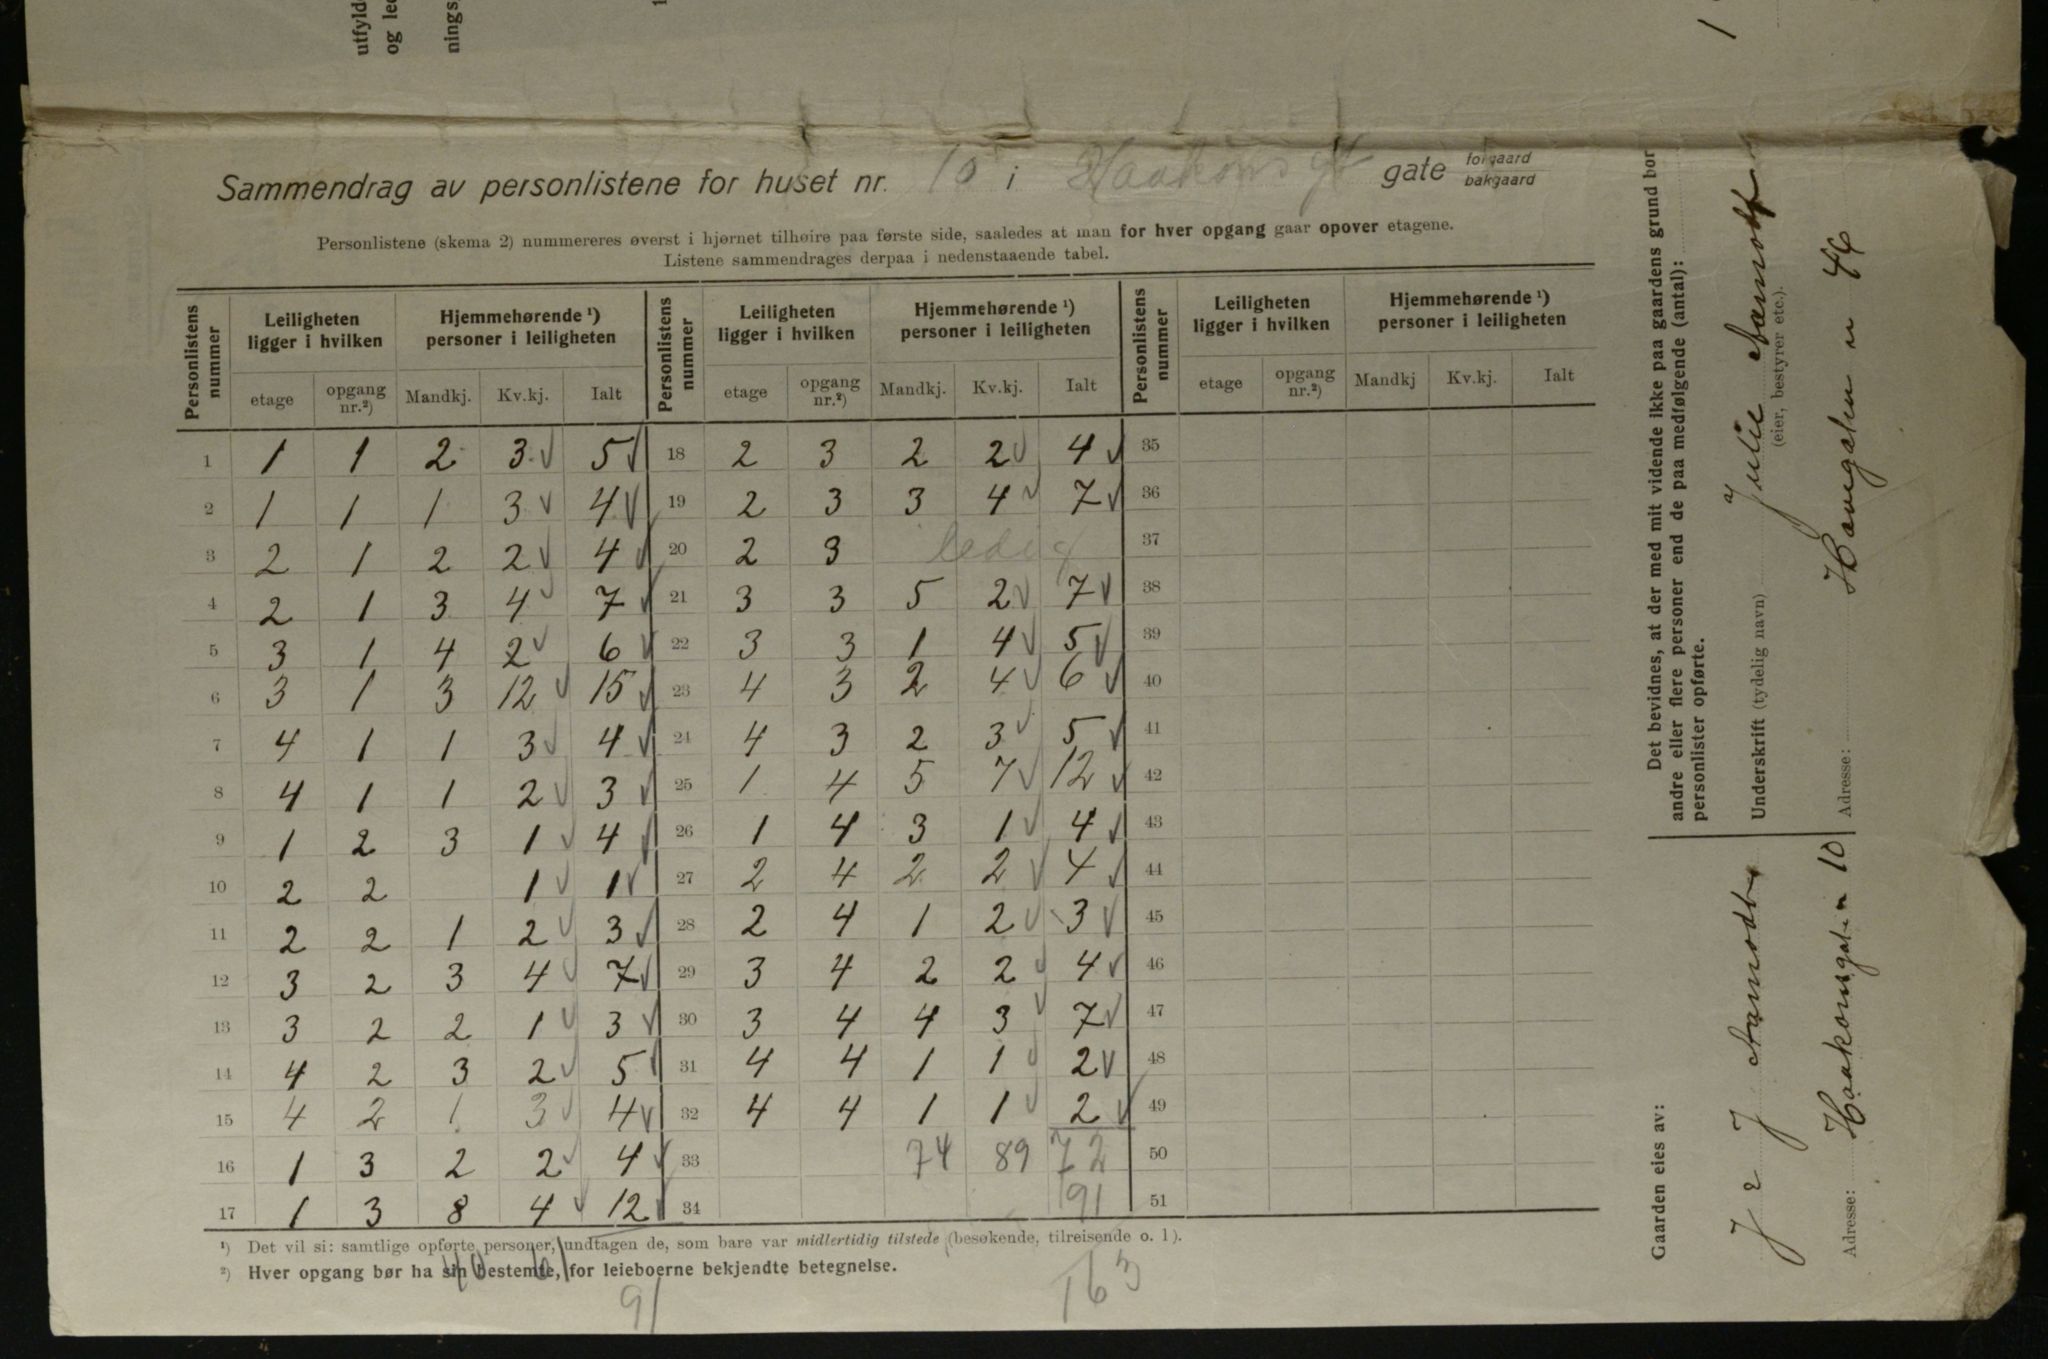 utfyld
og le
nings
Sammendrag av personlistene for huset nr. 10 i Haakons gt gate forgaard bakgaard
Personlistene (skema 2) nummereres øverst i hjørnet tilhøire paa første side, saaledes at man for hver opgang gaar opover etagene.
Listene sammendrages derpaa i nedenstaaende tabel.
Personlistens nummer | Leiligheten ligger i hvilken | Hjemmehørende ¹) personer i leiligheten | Personlistens nummer | Leiligheten ligger i hvilken | Hjemmehørende ¹) personer i leiligheten | Personlistens nummer | Leiligheten ligger i hvilken | Hjemmehørende ¹) personer i leiligheten
etage | opgang nr.²) | Mandkj. | Kv.kj. | Ialt | etage | opgang nr.²) | Mandkj. | Kv.kj. | Ialt | etage | opgang nr.²) | Mandkj | Kv.kj. | Ialt
1 1 1 2 3 √ 5 √ 18 2 3 2 2 √ 4 √ 35
2 1 1 1 3 √ 4 √ 19 2 3 3 4 √ 7 √ 36
3 2 1 2 2 √ 4 √ 20 2 3 ledig 37
4 2 1 3 4 √ 7 √ 21 3 3 5 2 √ 7 √ 38
5 3 1 4 2 √ 6 √ 22 3 3 1 4 √ 5 √ 39
6 3 1 3 12 √ 15 √ 23 4 3 2 4 √ 6 √ 40
7 4 1 1 3 √ 4 √ 24 4 3 2 3 √ 5 √ 41
8 4 1 1 2 √ 3 √ 25 1 4 5 7 √ 12 √ 42
9 1 2 3 1 √ 4 √ 26 1 4 3 1 √ 4 √ 43
10 2 2 1 √ 1 √ 27 2 4 2 2 √ 4 √ 44
11 2 2 1 2 √ 3 √ 28 2 4 1 2 √ 3 √ 45
12 3 2 3 4 √ 7 √ 29 3 4 2 2 √ 4 √ 46
13 3 2 2 1 √ 3 √ 30 3 4 4 3 √ 7 √ 47
14 4 2 3 2 √ 5 √ 31 4 4 1 1 √ 2 √ 48
15 4 2 1 3 √ 4 √ 32 4 4 1 1 √ 2 √ 49
16 1 3 2 2 √ 4 √ 33 74 89 72 50
17 1 3 8 4 √ 12 √ 34 91 51
¹) Det vil si: samtlige opførte personer, undtagen de, som bare var midlertidig tilstede (besøkende, tilreisende o. l).
²) Hver opgang bør ha sin bestemte, for leieboerne bekjendte betegnelse.
91 163
Det bevidnes, at der med mit vidende ikke paa gaardens grund bor
andre eller flere personer end de paa medfølgende (antal):
personlister opførte.
Underskrift (tydelig navn) Julie
(eier, bestyrer etc.).
Adresse: 46
Gaarden eies av:
J
Adresse: Haakonsgaten 10